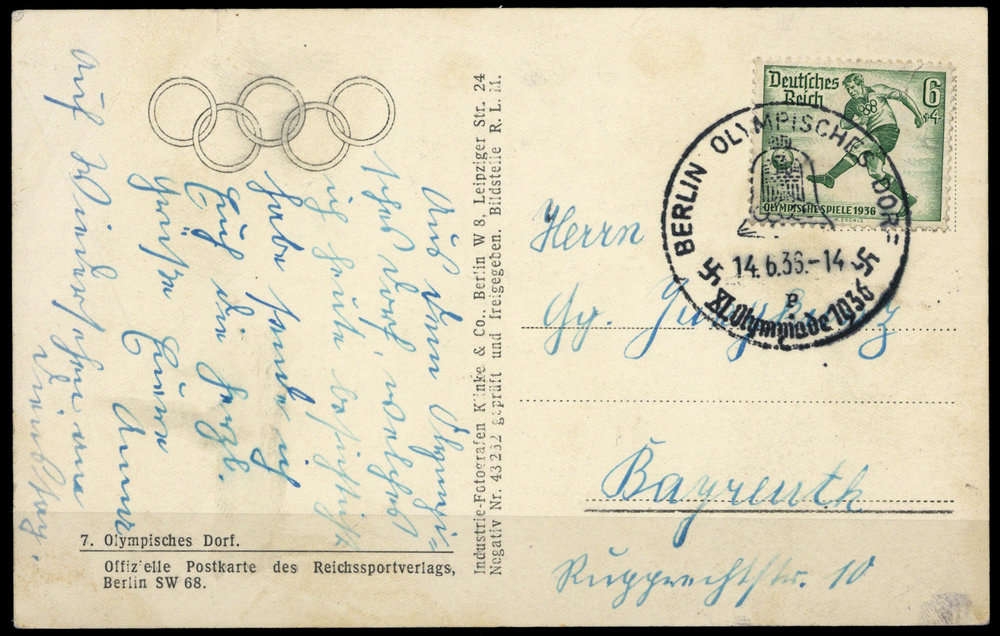 Aus dem Olympi-
schen Dorf, welches
ich heute besichtigt
habe sende ich
Euch die herzl.
Grüße Euere
Auf Wiedersehen am
Dienstag.
7. Olympisches Dorf.
Offizielle Postkarte des Reichssportverlags,
Berlin SW 68.
Industrie-Fotografen Klinke & Co., Berlin W 8, Leipziger Str. 24
Negativ Nr. 43232 geprüft und freigegeben. Bildstelle R. L. M.
Deutsches
Reich
6
+4
OLYMPISCHE SPIELE 1936
BERLIN OLYMPISCHES DORF
14.6.36.-14
P
XI. Olympiade 1936
Herrn
Gg.
Bayreuth
Rupprechtstr. 10